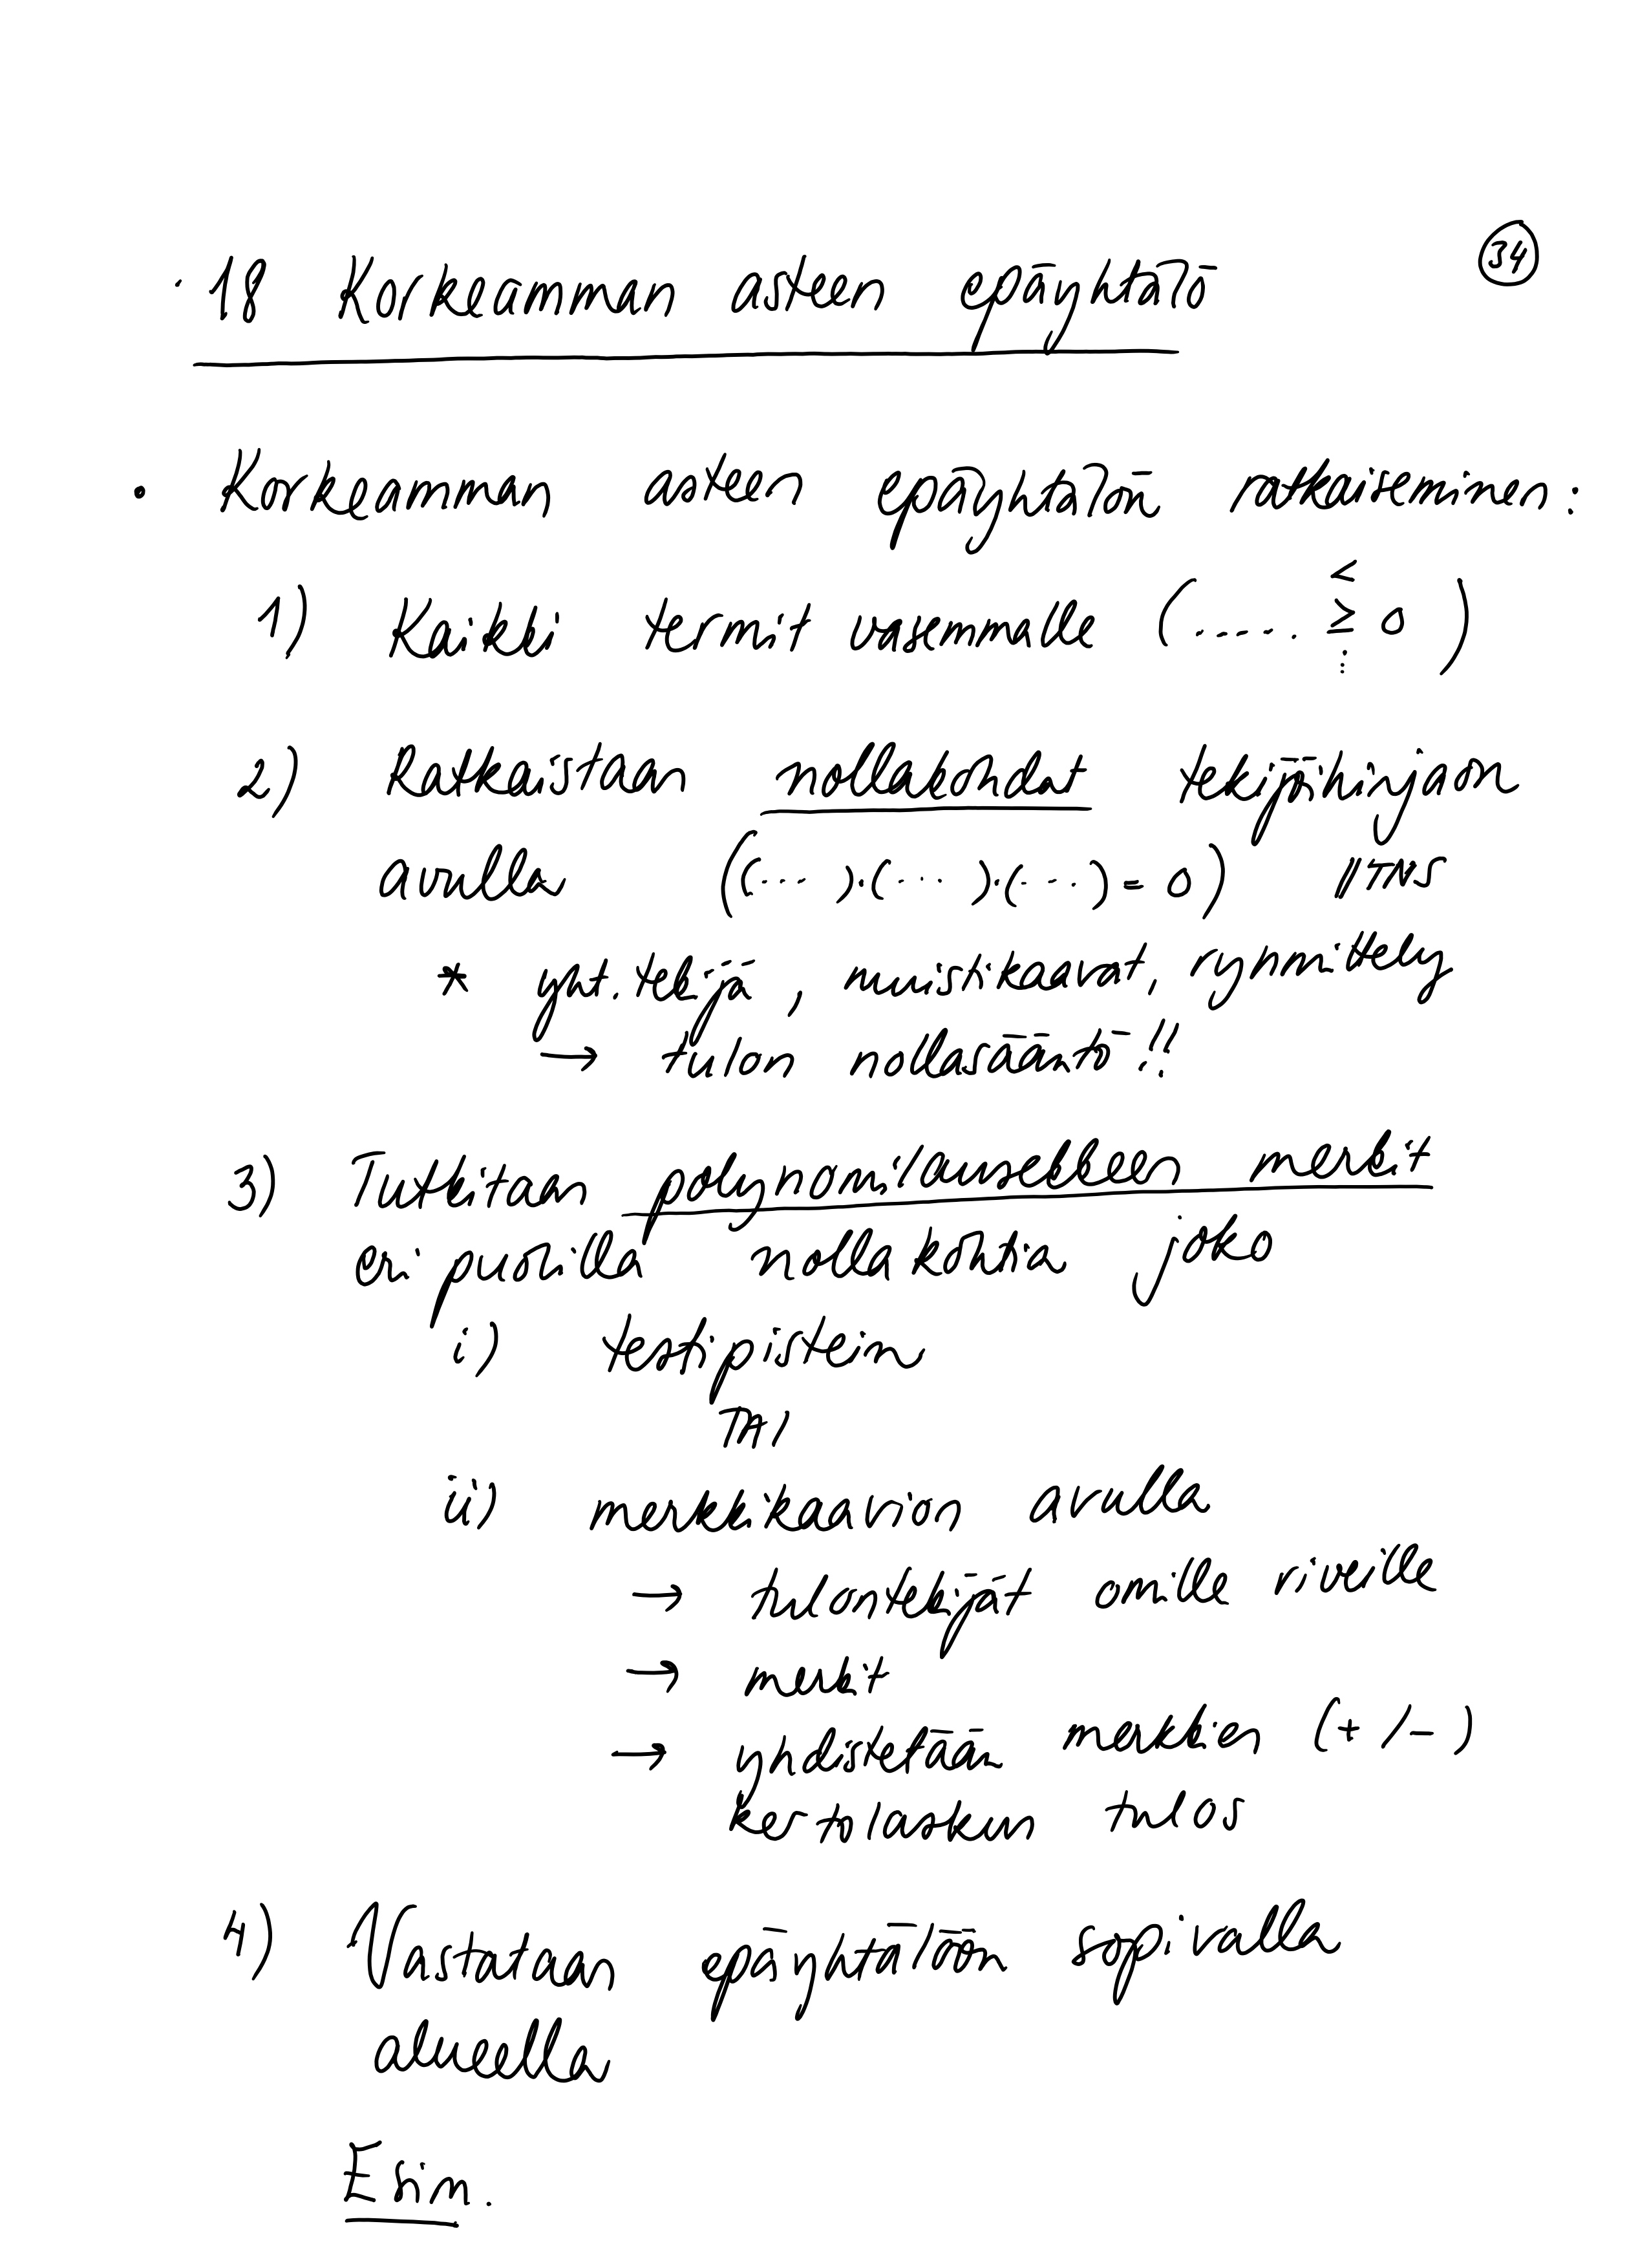 34
18 Korkeamman asteen epäyhtälö
• Korkeamman asteen epäyhtälön ratkaiseminen:
<
1) Kaikki termit vasemmalle (...... ≥ 0 )
⋮
2) Ratkaistaan nollakohdat tekijöihinjaon
avulla ((... )·(... )·(... ) = 0) //TNS
* yht. tekijä, muistikaavat, ryhmittely
→ tulon nollasääntö!!
3) Tutkitaan polynomilausekkeen merkit
eri puolilla nollakohtia joko
i) testipistein
TAI
ii) merkkikaavion avulla
→ tulontekijät omille riveille
→ merkit
→ yhdistetään merkkien (+ / − )
kertolaskun tulos
4) Vastataan epäyhtälöön sopivalla
alueella
Esim.